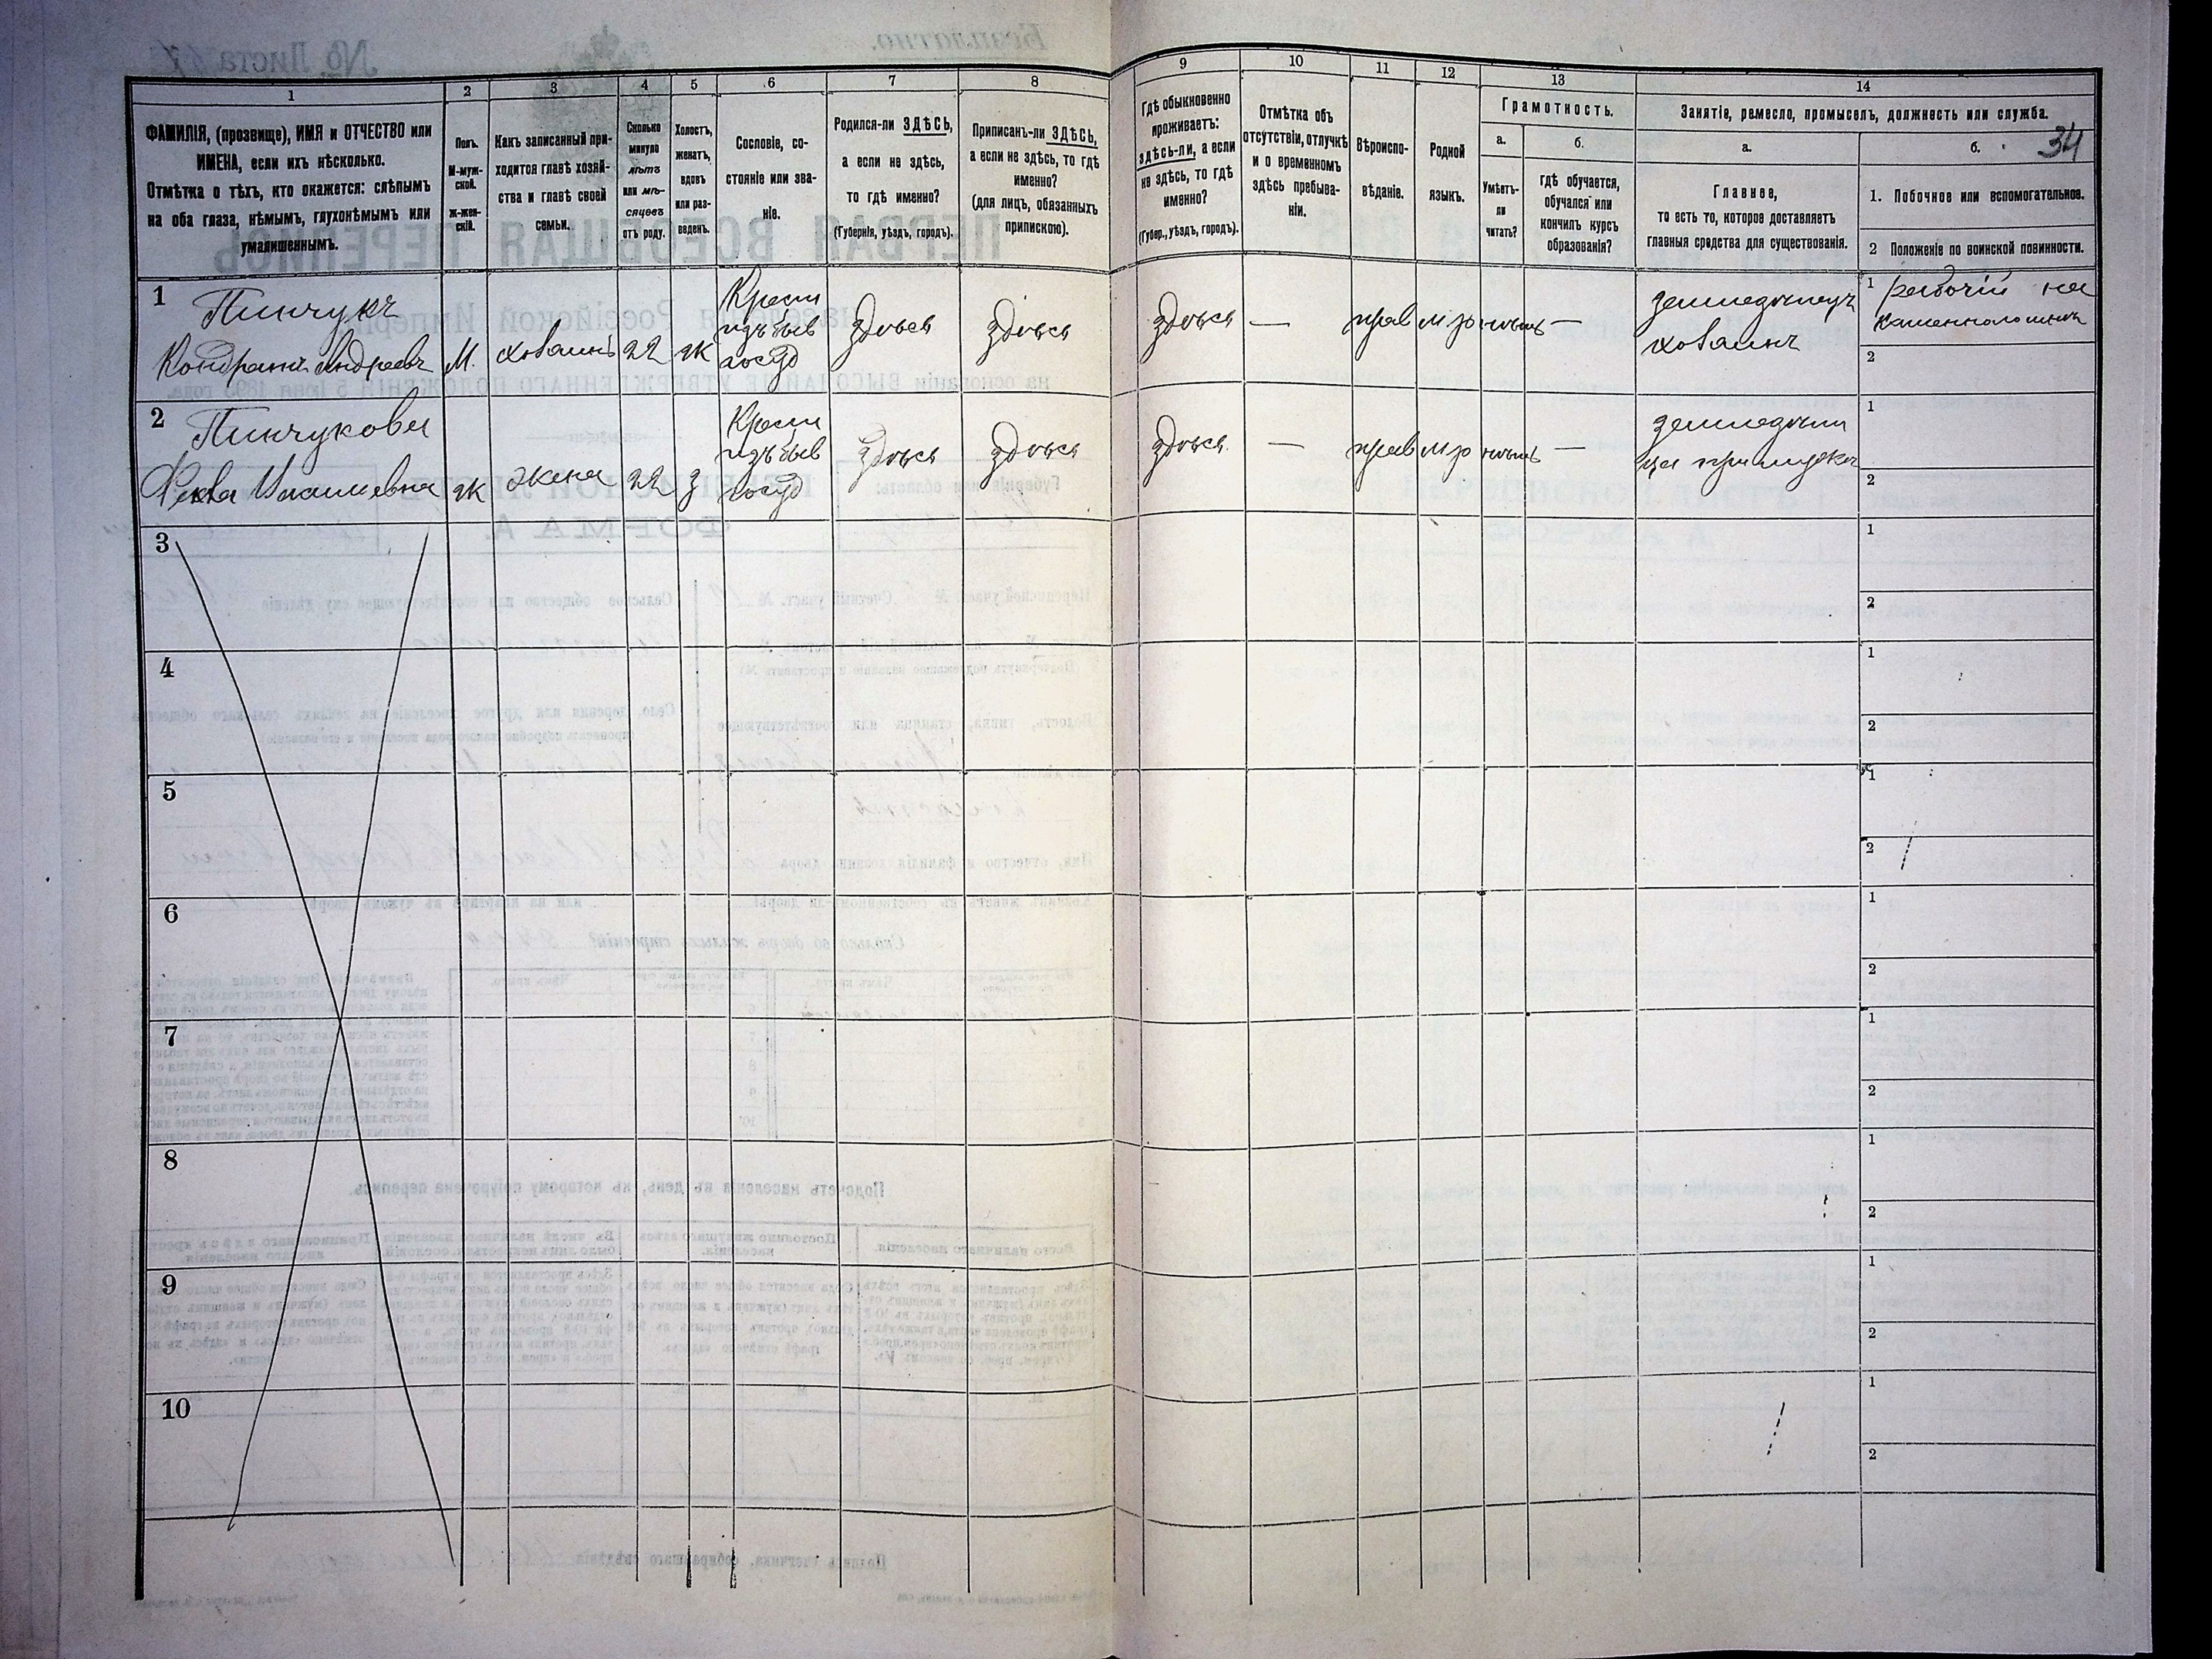 1
2
3
4
5
6
7
8
9
10
11
12
13
14
ФАМИЛІЯ, (прозвище), ИМЯ и ОТЧЕСТВО или
ИМЕНА, если ихъ нѣсколько.
Отмѣтка о тѣхъ, кто окажется: слѣпымъ
на оба глаза, нѣмымъ, глухонѣмымъ или
умалишеннымъ.
Полъ.
М-муж-
ской.
Ж-жен-
скій.
Какъ записанный при-
ходится главѣ хозяй-
ства и главѣ своей
семьи.
Сколько
минуло
лѣтъ
или мѣ-
сяцевъ
отъ роду.
Холостъ,
женатъ,
вдовъ
или раз-
веденъ.
Сословіе, со-
стояніе или зва-
ніе.
Родился-ли ЗДѢСЬ,
а если не здѣсь,
то гдѣ именно?
(Губернія, уѣздъ, городъ).
Приписанъ-ли ЗДѢСЬ,
а если не здѣсь, то гдѣ
именно?
(для лицъ, обязанныхъ
припискою).
Гдѣ обыкновенно
проживаетъ:
здѣсь-ли, а если
не здѣсь, то гдѣ
именно?
(Губер., уѣздъ, городъ).
Отмѣтка объ
отсутствіи, отлучкѣ
и о временномъ
здѣсь пребыва-
ніи.
Вѣроиспо-
вѣданіе.
Родной
языкъ.
Грамотность.
а.
Умѣетъ-
ли
читать?
б.
гдѣ обучается,
обучался или
кончилъ курсъ
образованія?
Занятіе, ремесло, промыселъ, должность или служба.
34
а.
Главное,
то есть то, которое доставляетъ
главныя средства для существованія.
б.
1. Побочное или вспомогательное.
2 Положеніе по воинской повинности.
1
Пинчукъ
Кондратъ Андреевъ
М.
хозяинъ
22
ж
Крест
изъ быв
госуд
здѣсь
здѣсь
здѣсь
—
прав
мр
нѣтъ
—
земледѣлецъ
хозяинъ
1 рабочій на
2
2
Пинчукова
ж
жена
22
з
Крест
изъ быв
госуд
здѣсь
здѣсь
здѣсь
—
прав
мр
нѣтъ
—
1
2
3
1
2
4
1
2
5
1
2
6
1
2
7
1
2
8
1
2
9
1
2
10
1
2